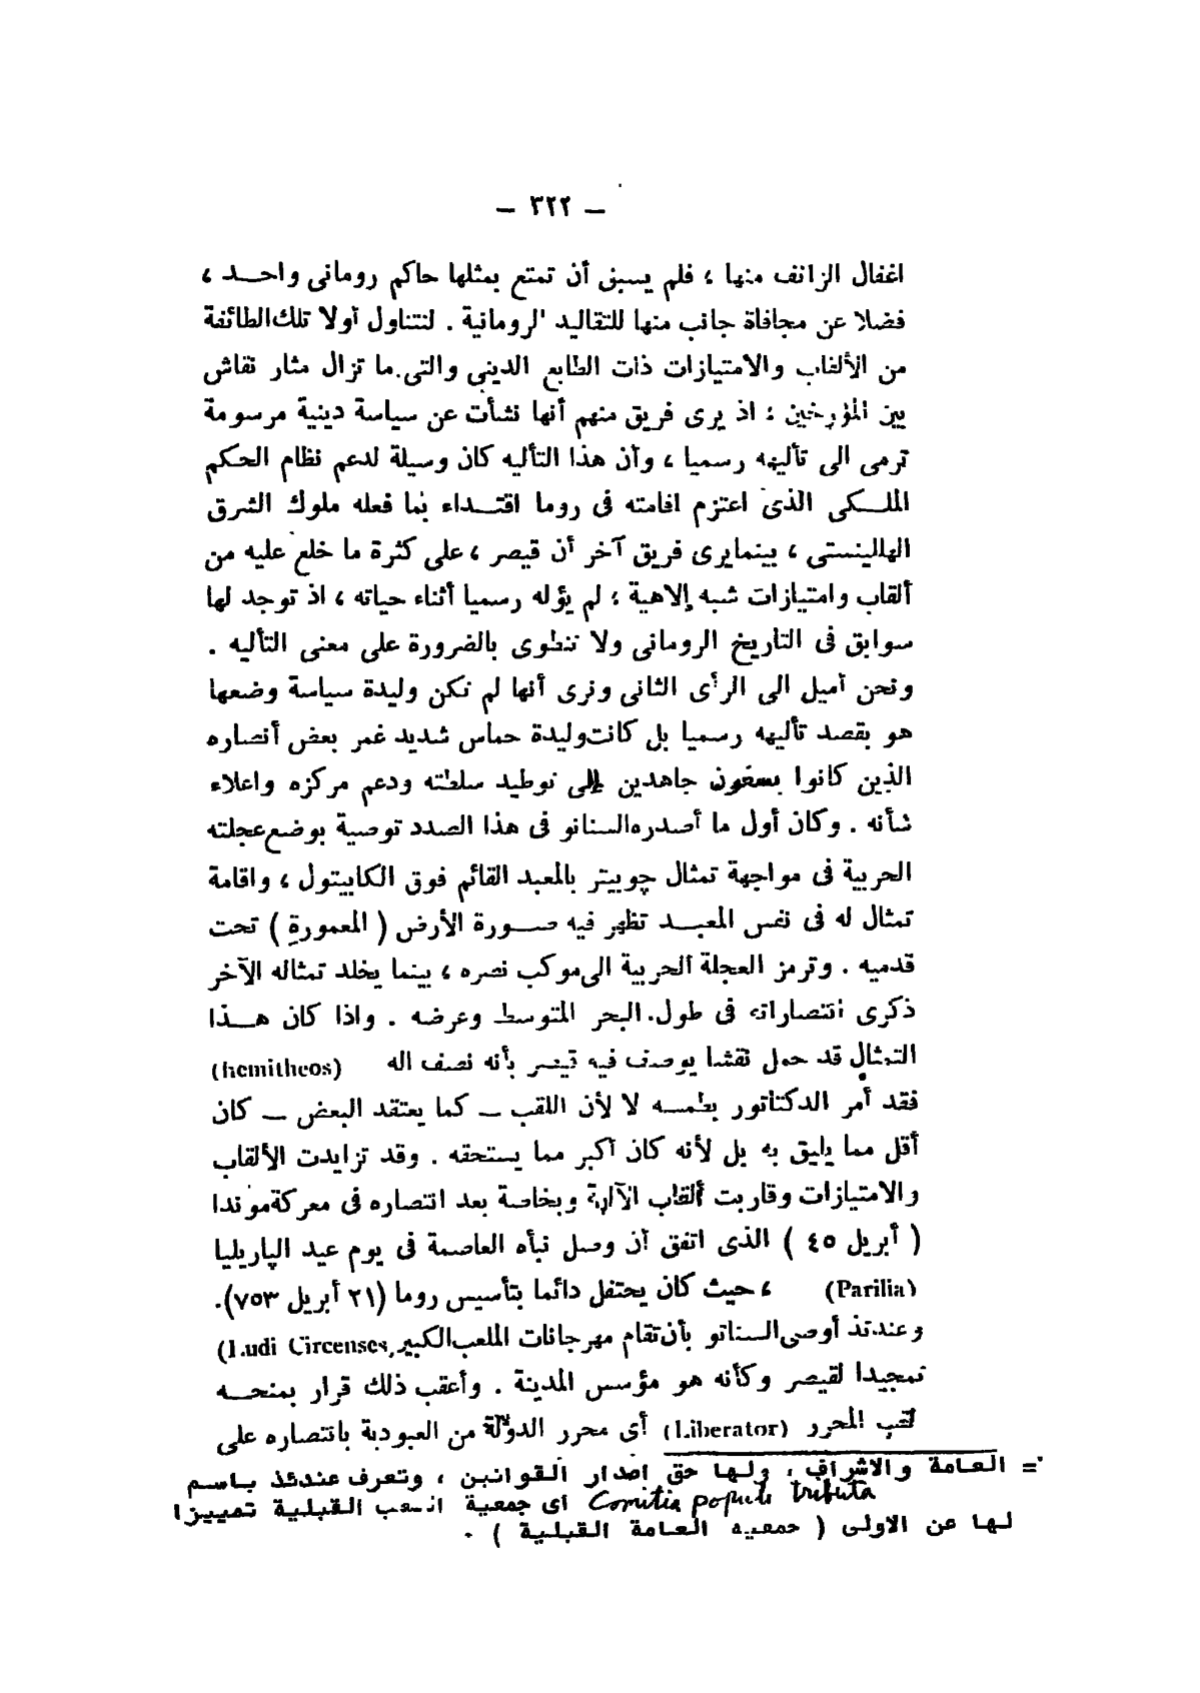 — ٣٢٢ —
اغفال الزائف منها ، فلم يسبق أن تمتع بمثلها حاكم رومانى واحد ،
فضلا عن مجافاة جانب منها للتقاليد الرومانية . لنتناول أولا تلك الطائفة
من الألقاب والامتيازات ذات الطابع الدينى والتى ما تزال مثار نقاش
بين المؤرخين ؛ اذ يرى فريق منهم أنها نشأت عن سياسة دينية مرسومة
ترمى الى تأليهه رسميا ، وأن هذا التأليه كان وسيلة لدعم نظام الحكم
الملكى الذى اعتزم اقامته فى روما اقتداء بما فعله ملوك الشرق
الهللينستى ، بينما يرى فريق آخر أن قيصر ، على كثرة ما خلع عليه من
ألقاب وامتيازات شبه إلاهية ؛ لم يؤله رسميا أثناء حياته ، اذ توجد لها
سوابق فى التاريخ الرومانى ولا تنطوى بالضرورة على معنى التأليه .
ونحن أميل الى الرأى الثانى ونرى أنها لم تكن وليدة سياسة وضعها
هو بقصد تأليهه رسميا بل كانت وليدة حماس شديد غمر بعض أنصاره
الذين كانوا يسعون جاهدين إلى توطيد سلطته ودعم مركزه واعلاء
شأنه . وكان أول ما أصدره السناتو فى هذا الصدد توصية بوضع عجلته
الحربية فى مواجهة تمثال چوپيتر بالمعبد القائم فوق الكاپيتول ، واقامة
تمثال له فى نفس المعبد تظهر فيه صورة الأرض ( المعمورة ) تحت
قدميه . وترمز العجلة الحربية الى موكب نصره ، بينما يخلد تمثاله الآخر
ذكرى انتصاراته فى طول البحر المتوسط وعرضه . واذا كان هذا
التمثال قد حمل نقشا يوصف فيه قيصر بأنه نصف اله (hemitheos)
فقد أمر الدكتاتور بطمسه لا لأن اللقب — كما يعتقد البعض — كان
أقل مما يليق به بل لأنه كان أكبر مما يستحقه . وقد تزايدت الألقاب
والامتيازات وقاربت ألقاب الآلهة وبخاصة بعد انتصاره فى معركة موندا
( أبريل ٤٥ ) الذى اتفق أن وصل نبأه العاصمة فى يوم عيد الپاريليا
(Parilia) ، حيث كان يحتفل دائما بتأسيس روما (٢١ أبريل ٧٥٣).
وعندئذ أوصى السناتو بأن تقام مهرجانات الملعب الكبير (Ludi Circenses
تمجيدا لقيصر وكأنه هو مؤسس المدينة . وأعقب ذلك قرار بمنحه
لقب المحرر (Liberator) أى محرر الدولة من العبودية بانتصاره على
= العامة والاشراف ، ولها حق اصدار القوانين ، وتعرف عندئذ باسم
Comitia populi tributa اى جمعية الشعب القبلية تمييزا
لها عن الاولى ( جمعية العامة القبلية ) .